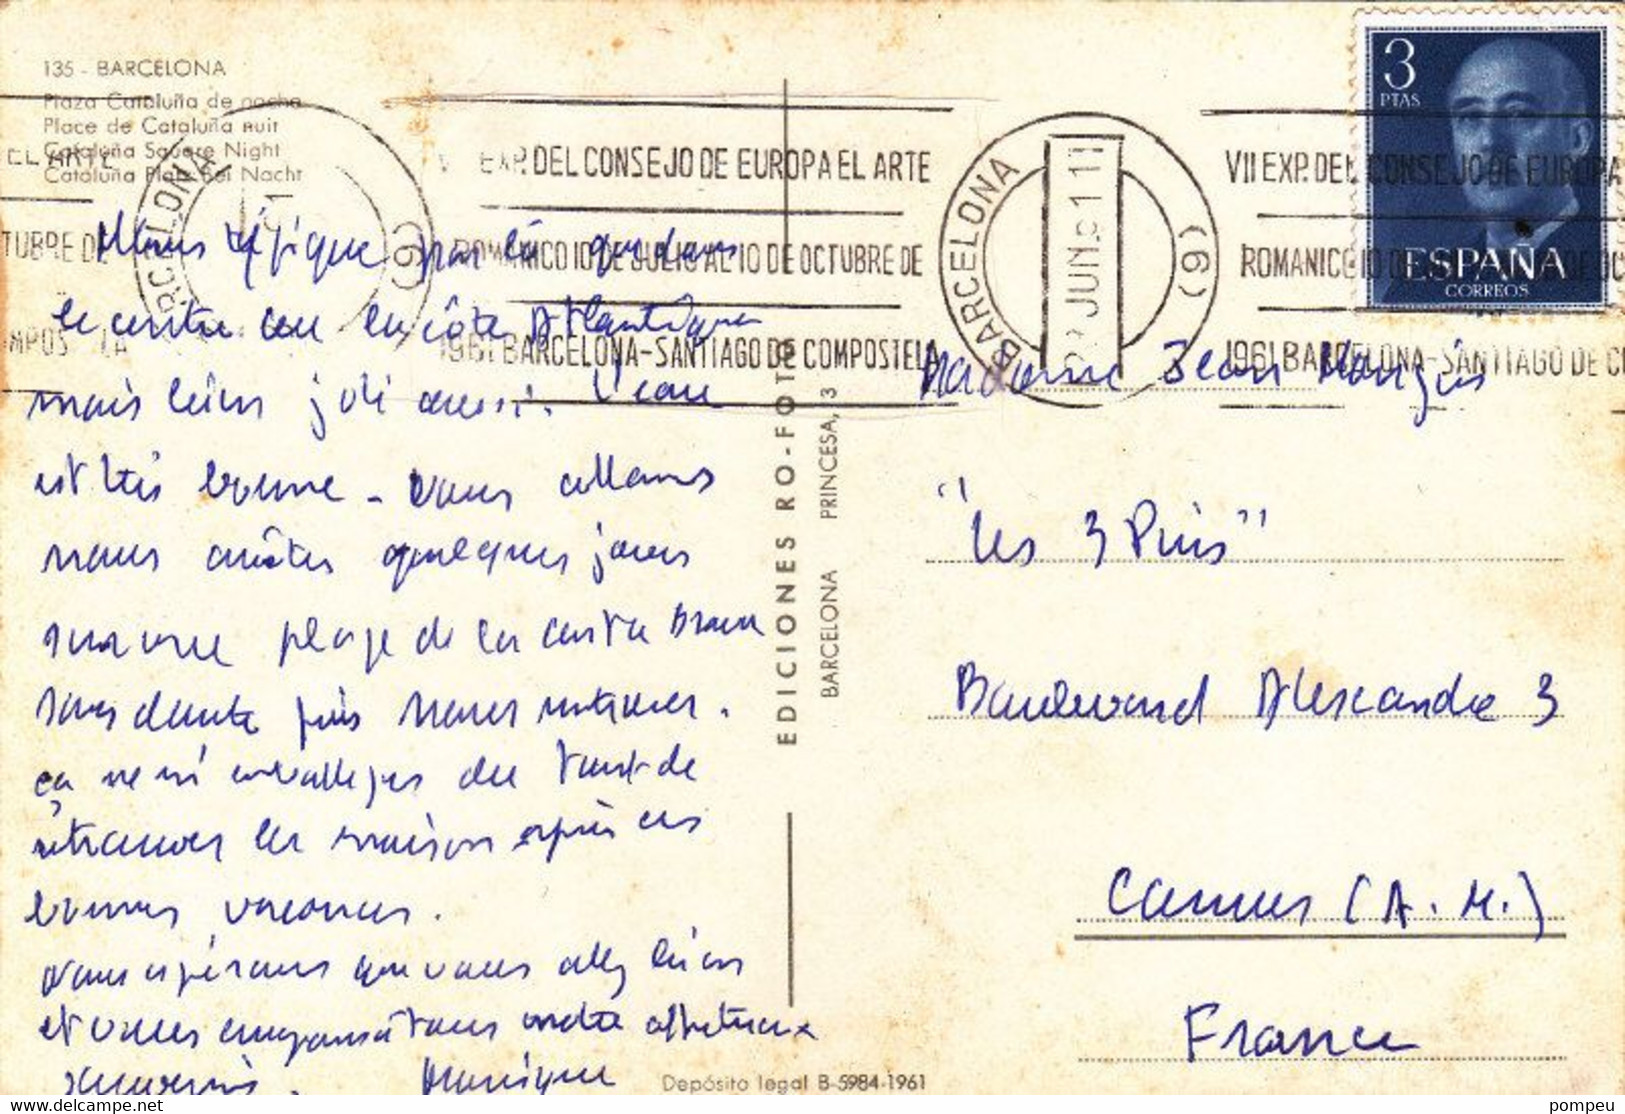 135 - BARCELONA
Plaza Cataluña de noche
Place de Cataluña nuit
Cataluña Square Night
Cataluña Platz Bei Nacht
EL ARTE
TUBRE DE
BARCELONA
(9)
VII EXP. DEL CONSEJO DE EUROPA EL ARTE
ROMANICO 10 DE JULIO AL 10 DE OCTUBRE DE
1961 BARCELONA-SANTIAGO DE COMPOSTELA
BARCELONA
JUN.
(9)
VII EXP. DEL CONSEJO DE EUROPA
ROMANICO 10 DE
1961 BARCELONA-SANTIAGO DE
3
PTAS
ESPAÑA
CORREOS
Moins typique par là que dans
le centre ou la côte Atlantique
mais bien joli aussi. L'eau
est très bonne - Nous allons
nous arrêter quelques jours
sur une plage de la costa Brava
sans doute puis nous rentrerons.
ça ne m'emballe pas du tout de
retrouver la maison après ces
bonnes vacances.
Nous espérons que vous allez bien
et vous embrassons tous notre affectueux
souvenir. Monique
EDICIONES RO-FOTO
BARCELONA PRINCESA, 3
Madame Jean
"Les 3 Pins"
Boulevard Alexandre 3
Cannes (A.M.)
France
Depósito legal B-5984-1961
pompeu